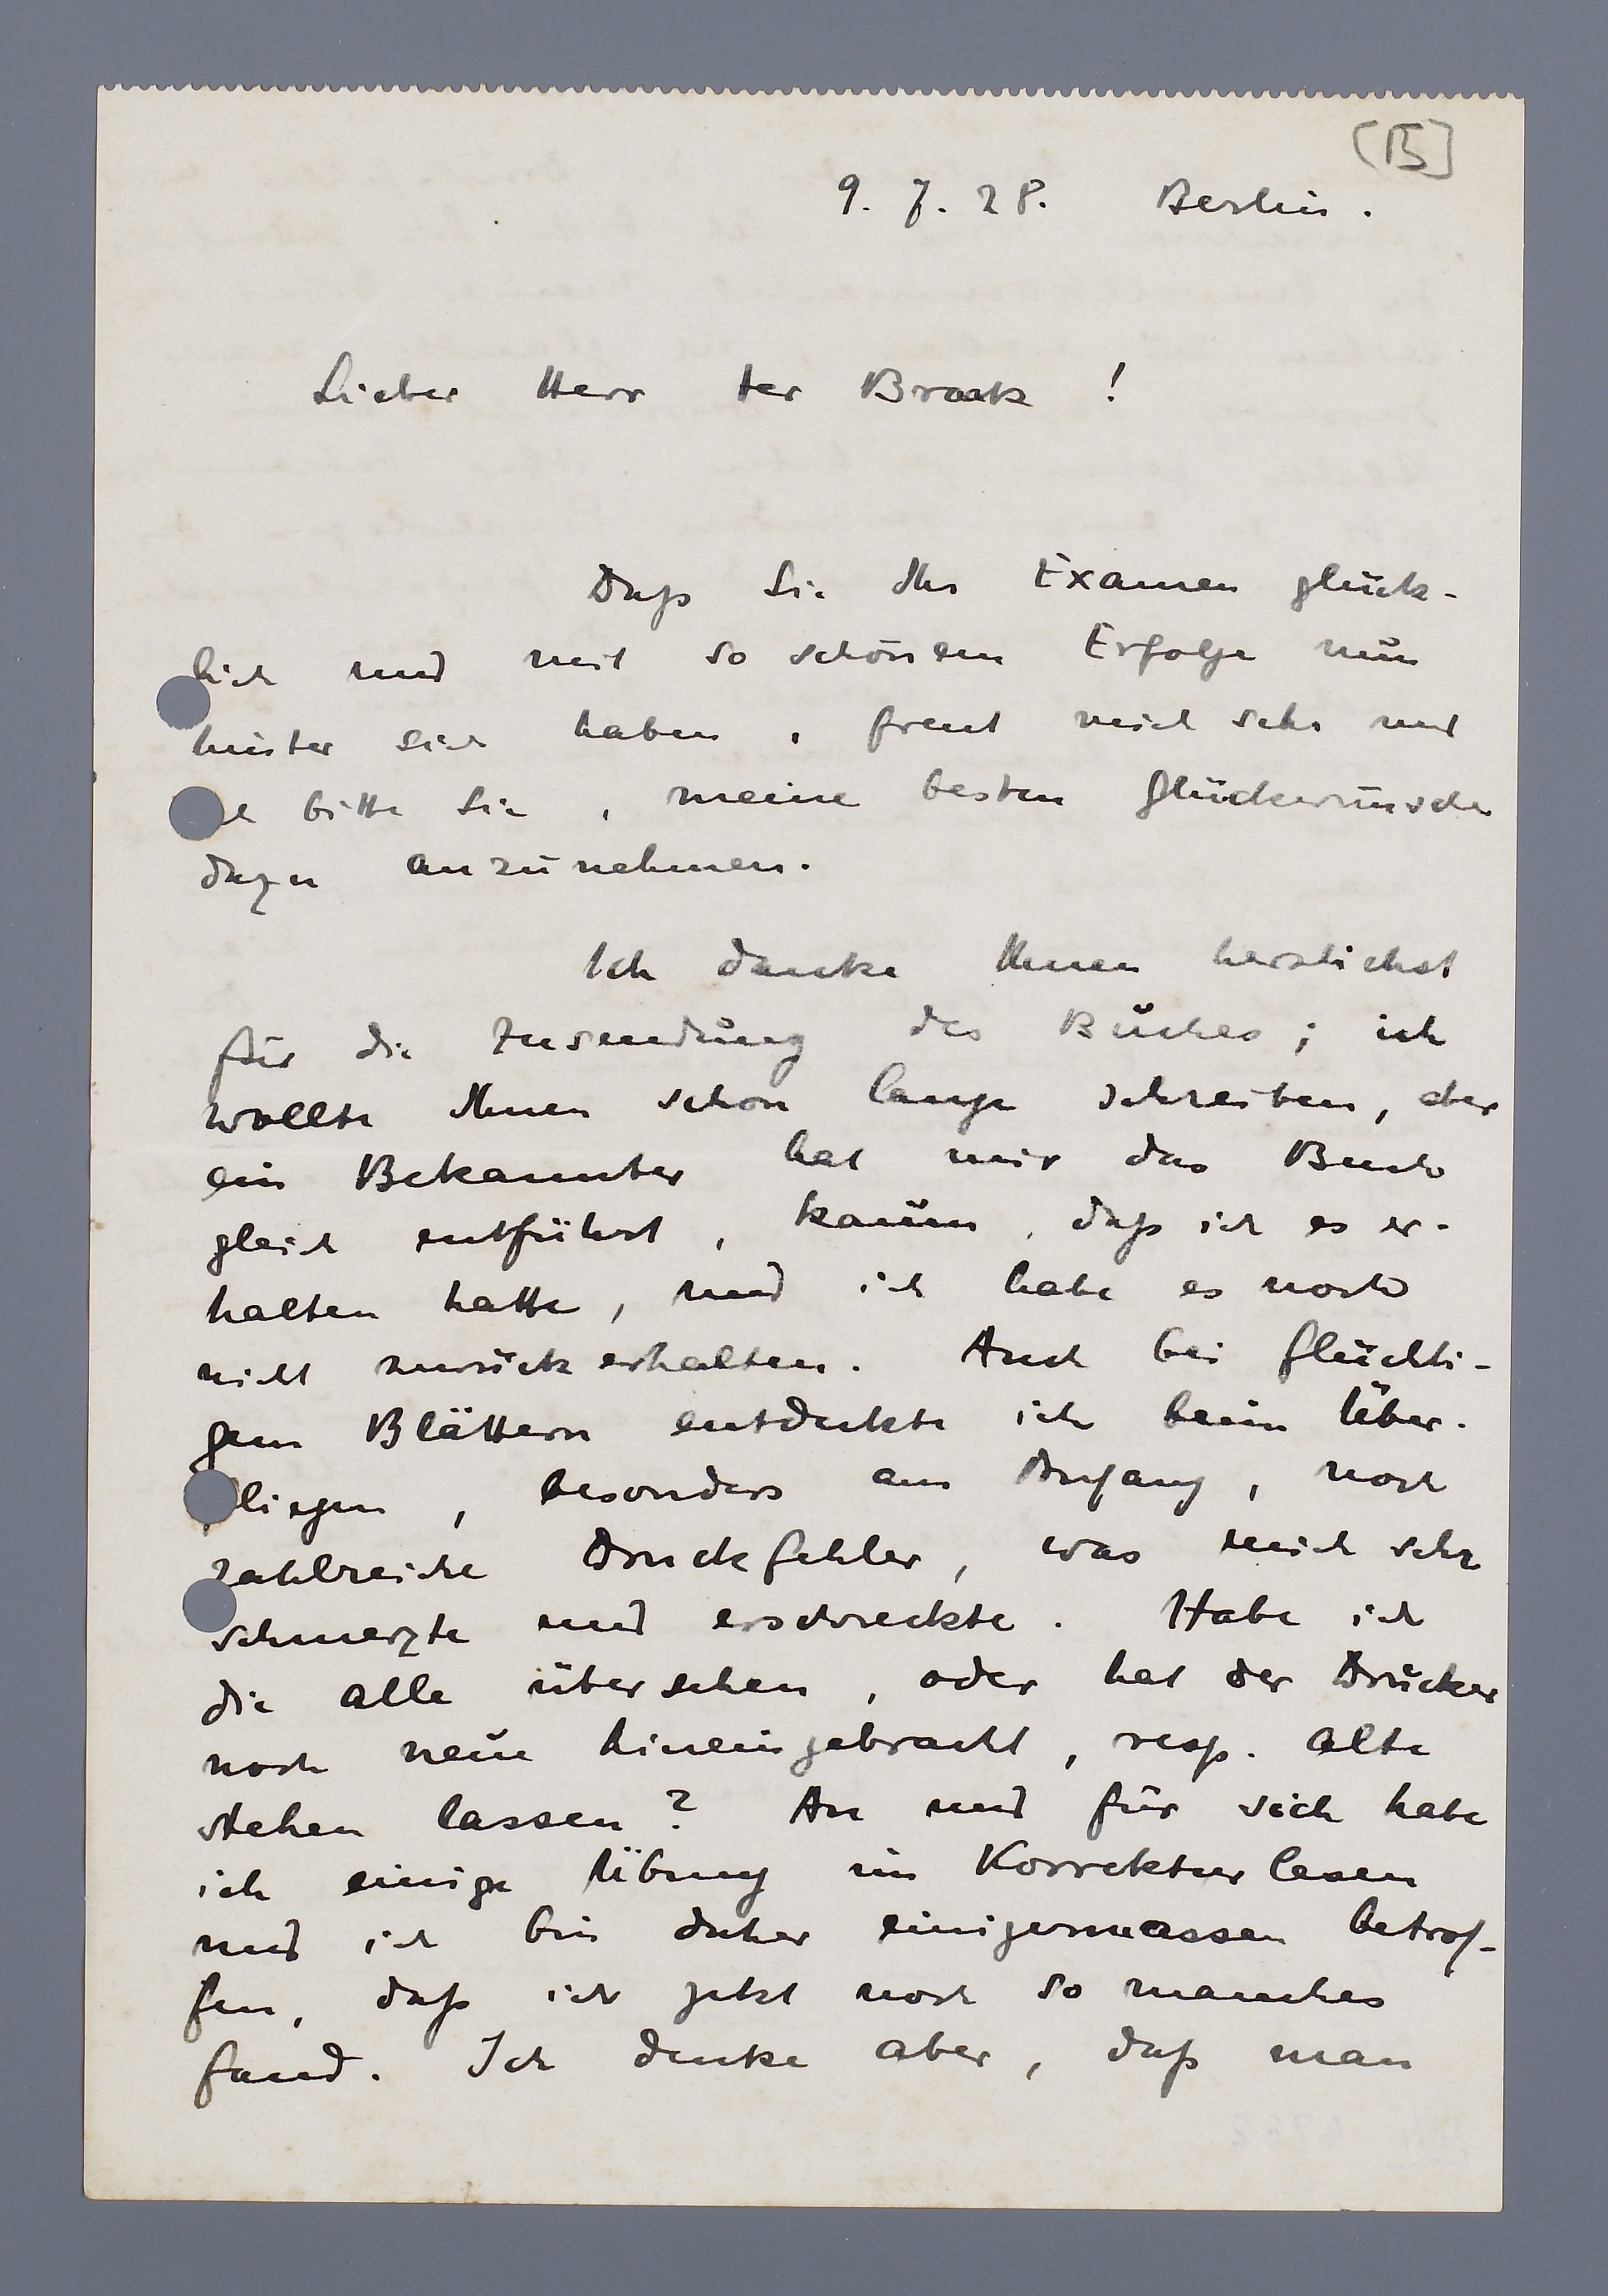 [B]
9. 7. 28. Berlin.
Lieber Herr ter Braak !
Daß Sie Ihr Examen glück-
lich und mit so schönem Erfolge nun
hinter sich haben, freut mich sehr und
bitte Sie, meine besten Glückwünsche
dazu anzunehmen.
Ich danke Ihnen herzlichst
für die Zusendung des Buches; ich
wollte Ihnen schon lange schreiben, aber
ein Bekannter hat mir das Buch
gleich entführt, kaum, daß ich es er-
halten hatte, und ich habe es noch
nicht zurückerhalten. Auch bei flüchti-
gem Blättern entdeckte ich beim Über-
fliegen, besonders am Anfang, noch
zahlreiche Druckfehler, was mich sehr
schmerzte und erschreckte. Habe ich
die alle übersehen, oder hat der Drucker
noch neue hineingebracht, resp. alte
stehen lassen? An und für sich habe
ich einige Übung im Korrekturlesen
und ich bin daher einigermassen betrof-
fen, daß ich jetzt noch so manches
fand. Ich denke aber, daß man